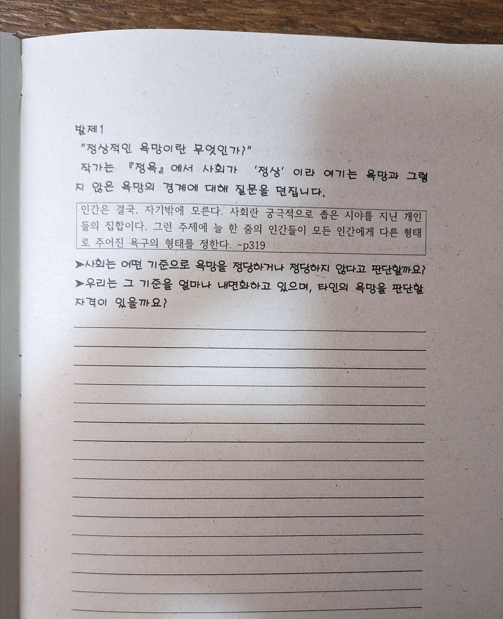 발제1
"정상적인 욕망이란 무엇인가?"
작가는 『정욕』에서 사회가 '정상'이라 여기는 욕망과 그렇
지 않은 욕망의 경계에 대해 질문을 던집니다.
인간은 결국, 자기밖에 모른다. 사회란 궁극적으로 좁은 시야를 지닌 개인
들의 집합이다. 그런 주제에 늘 한 줌의 인간들이 모든 인간에게 다른 형태
로 주어진 욕구의 형태를 정한다. -p319
➤사회는 어떤 기준으로 욕망을 정당하거나 정당하지 않다고 판단할까요?
➤우리는 그 기준을 얼마나 내면화하고 있으며, 타인의 욕망을 판단할
자격이 있을까요?